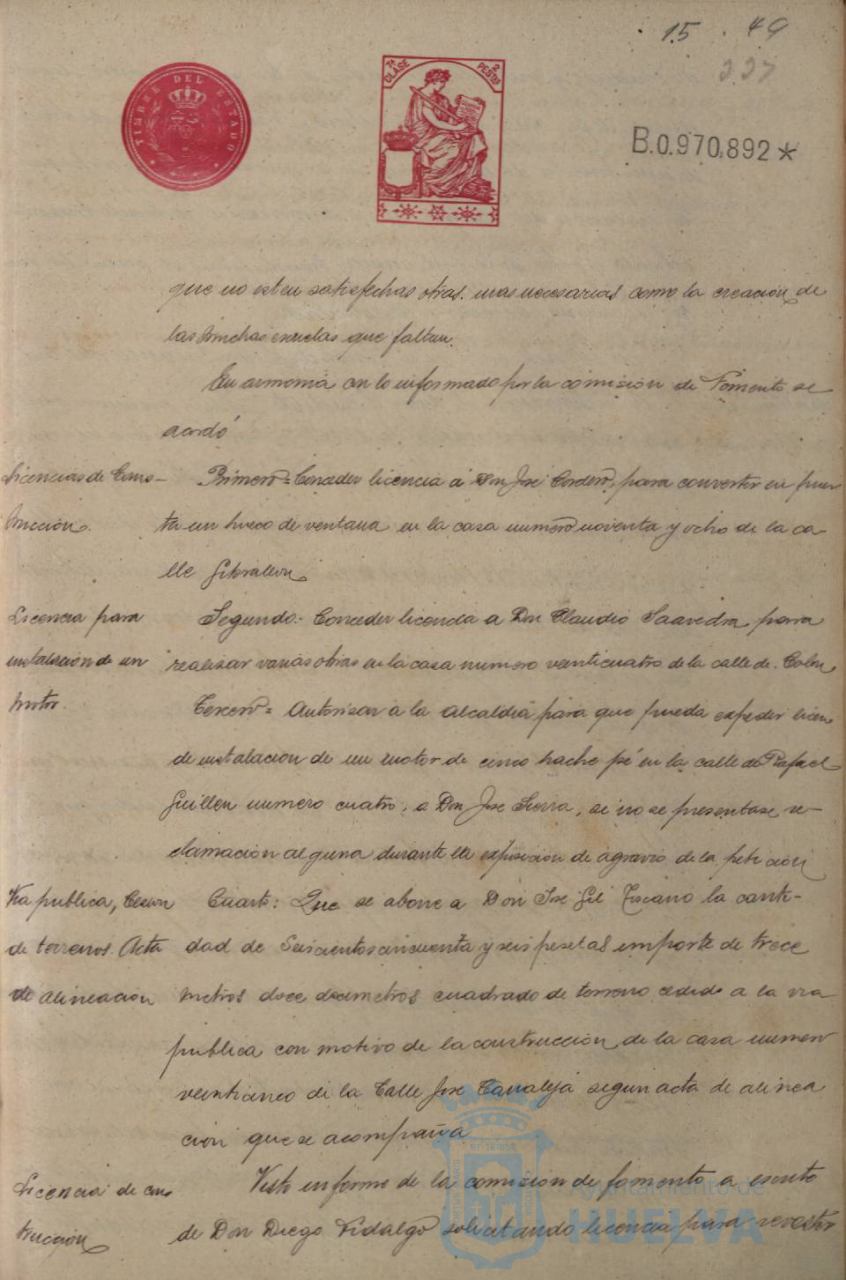 15 . 49
227
TIMBRE DEL ESTADO
7ª CLASE 2 PESTAS
B.0.970,892*
que no esten satisfechas otras mas necesarias como la creación de
las muchas escuelas que faltan.
En armonia con lo informado por la comisión de Fomento se
acordó
Licencias de Cons-
trucción.
Primero = Conceder licencia á Don José Cordero, para convertir en puer
ta un hueco de ventana en la casa numero noventa y ocho de la ca-
lle Gibraleon
Licencia para
instalacion de un
motor.
Segundo.- Conceder licencia a Don Claudio Saavedra para
realisar varias obras en la casa numero veinticuatro de la calle de Colon
Tercero = Autorisar a la Alcaldia para que pueda expedir licen
de instalacion de un motor de cinco hache pé en la calle de Rafael
Guillen numero cuatro, a Don Jose Sierra, si no se presentase re-
clamación alguna durante la exposicion de agravio de la petición
Via publica, Cesion
de terrenos. Acta
de alineacion
Cuarto: Que se abone a Don Jose Gil Toscano la canti-
dad de Seiscientos cincuenta y seis pesetas importe de trece
metros doce decimetros cuadrado de terreno cedido a la via
publica con motivo de la construccion de la casa numero
veinticinco de la Calle Jose Canaleja segun acta de alinea
cion que se acompaña
Licencia de cons
truccion
Visto informe de la comision de fomento a escrito
de Don Diego Vidalgo solicitando licencia para revestir
Ayuntamiento de
HUELVA